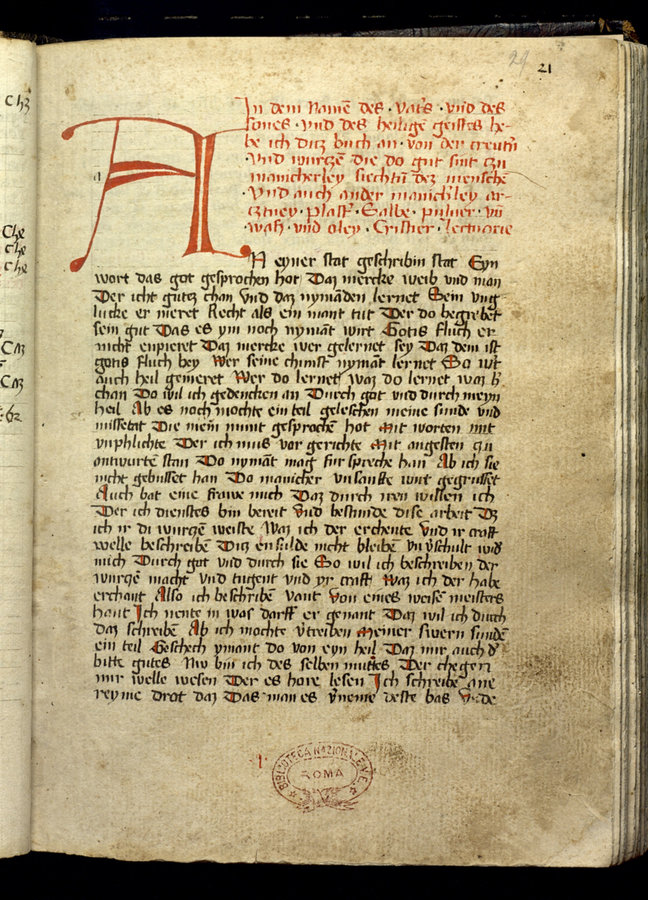 29
21
In dem Namē des · vat's · vnd des
sones · vnd des heilige geistes he-
be ich ditz buch an · von der creutm̄
· vnd wurczē die do gut sint czu
manicherley siechtū dez menschē
· vnd auch ander manich'ley ar-
cztney · plast' · Salbe · puluer · vū
wass · vnd oley · Cristier · lectuarie
A N eyner stat geschribin stat Eyn
wort das got gesprochen hot Daz mercke weib vnd man
Der icht gutz chan vnd daz nymāden lernet Sein vng
lucke er meret Recht als ein mont tut Der do begrebet
sein gut Das es ym noch nymāt wirt Gotis fluch er
nicht enpieret Daz mercke wer gelernet sey Daz dem ist
gotis fluch bey Wer seine chunst nymāt lernet So wt
auch heil gemeret Wer do lernet waz do lernet waz h'
chan Do wil ich gedencken an Durch got vnd durch meyn
heil Ab es noch mochte ein teil geleschen meine sunde vnd
missetat Die mein munt gesprochē hot Mit worten mit
vnphlichte Der ich mus vor gerichte Mit angesten czu
antwurtē stan Do nymāt mag fur spreche han Ab ich sie
nicht gebusset han Do manicher vnsanfte wirt gegrusset
Auch bat eine frawe mich Daz durch iren willen ich
Der ich dienstes bin bereit vnd bestunde dise arbeit Dz
ich ir di wurczē weiste Waz ich der erchente vnd ir craft
welle beschreibē Ditz ensulde nicht bleibē vn v'schult wid
mich Durch got vnd durch sie So wil ich beschreiben der
wurczē macht vnd tugent vnd yr craft Waz ich der habe
erchant Also ich beschribē vant von eines weisē meisters
hant Ich nente in was darff er genant Daz wil ich durch
daz schreibē Ab ich mochte v'treiben Meiner swern sundē
ein teil Geschech ymant do von eyn heil Daz mir auch d'
bitte gutes Nw bin ich des selben muttes Der chegen
mir welle wesen Der es hore lesen Ich schreibe ane
reyme drot daz Das man es v'neme deste bas v'de
BIBLIOTECA NAZIONALE V. E.
ROMA